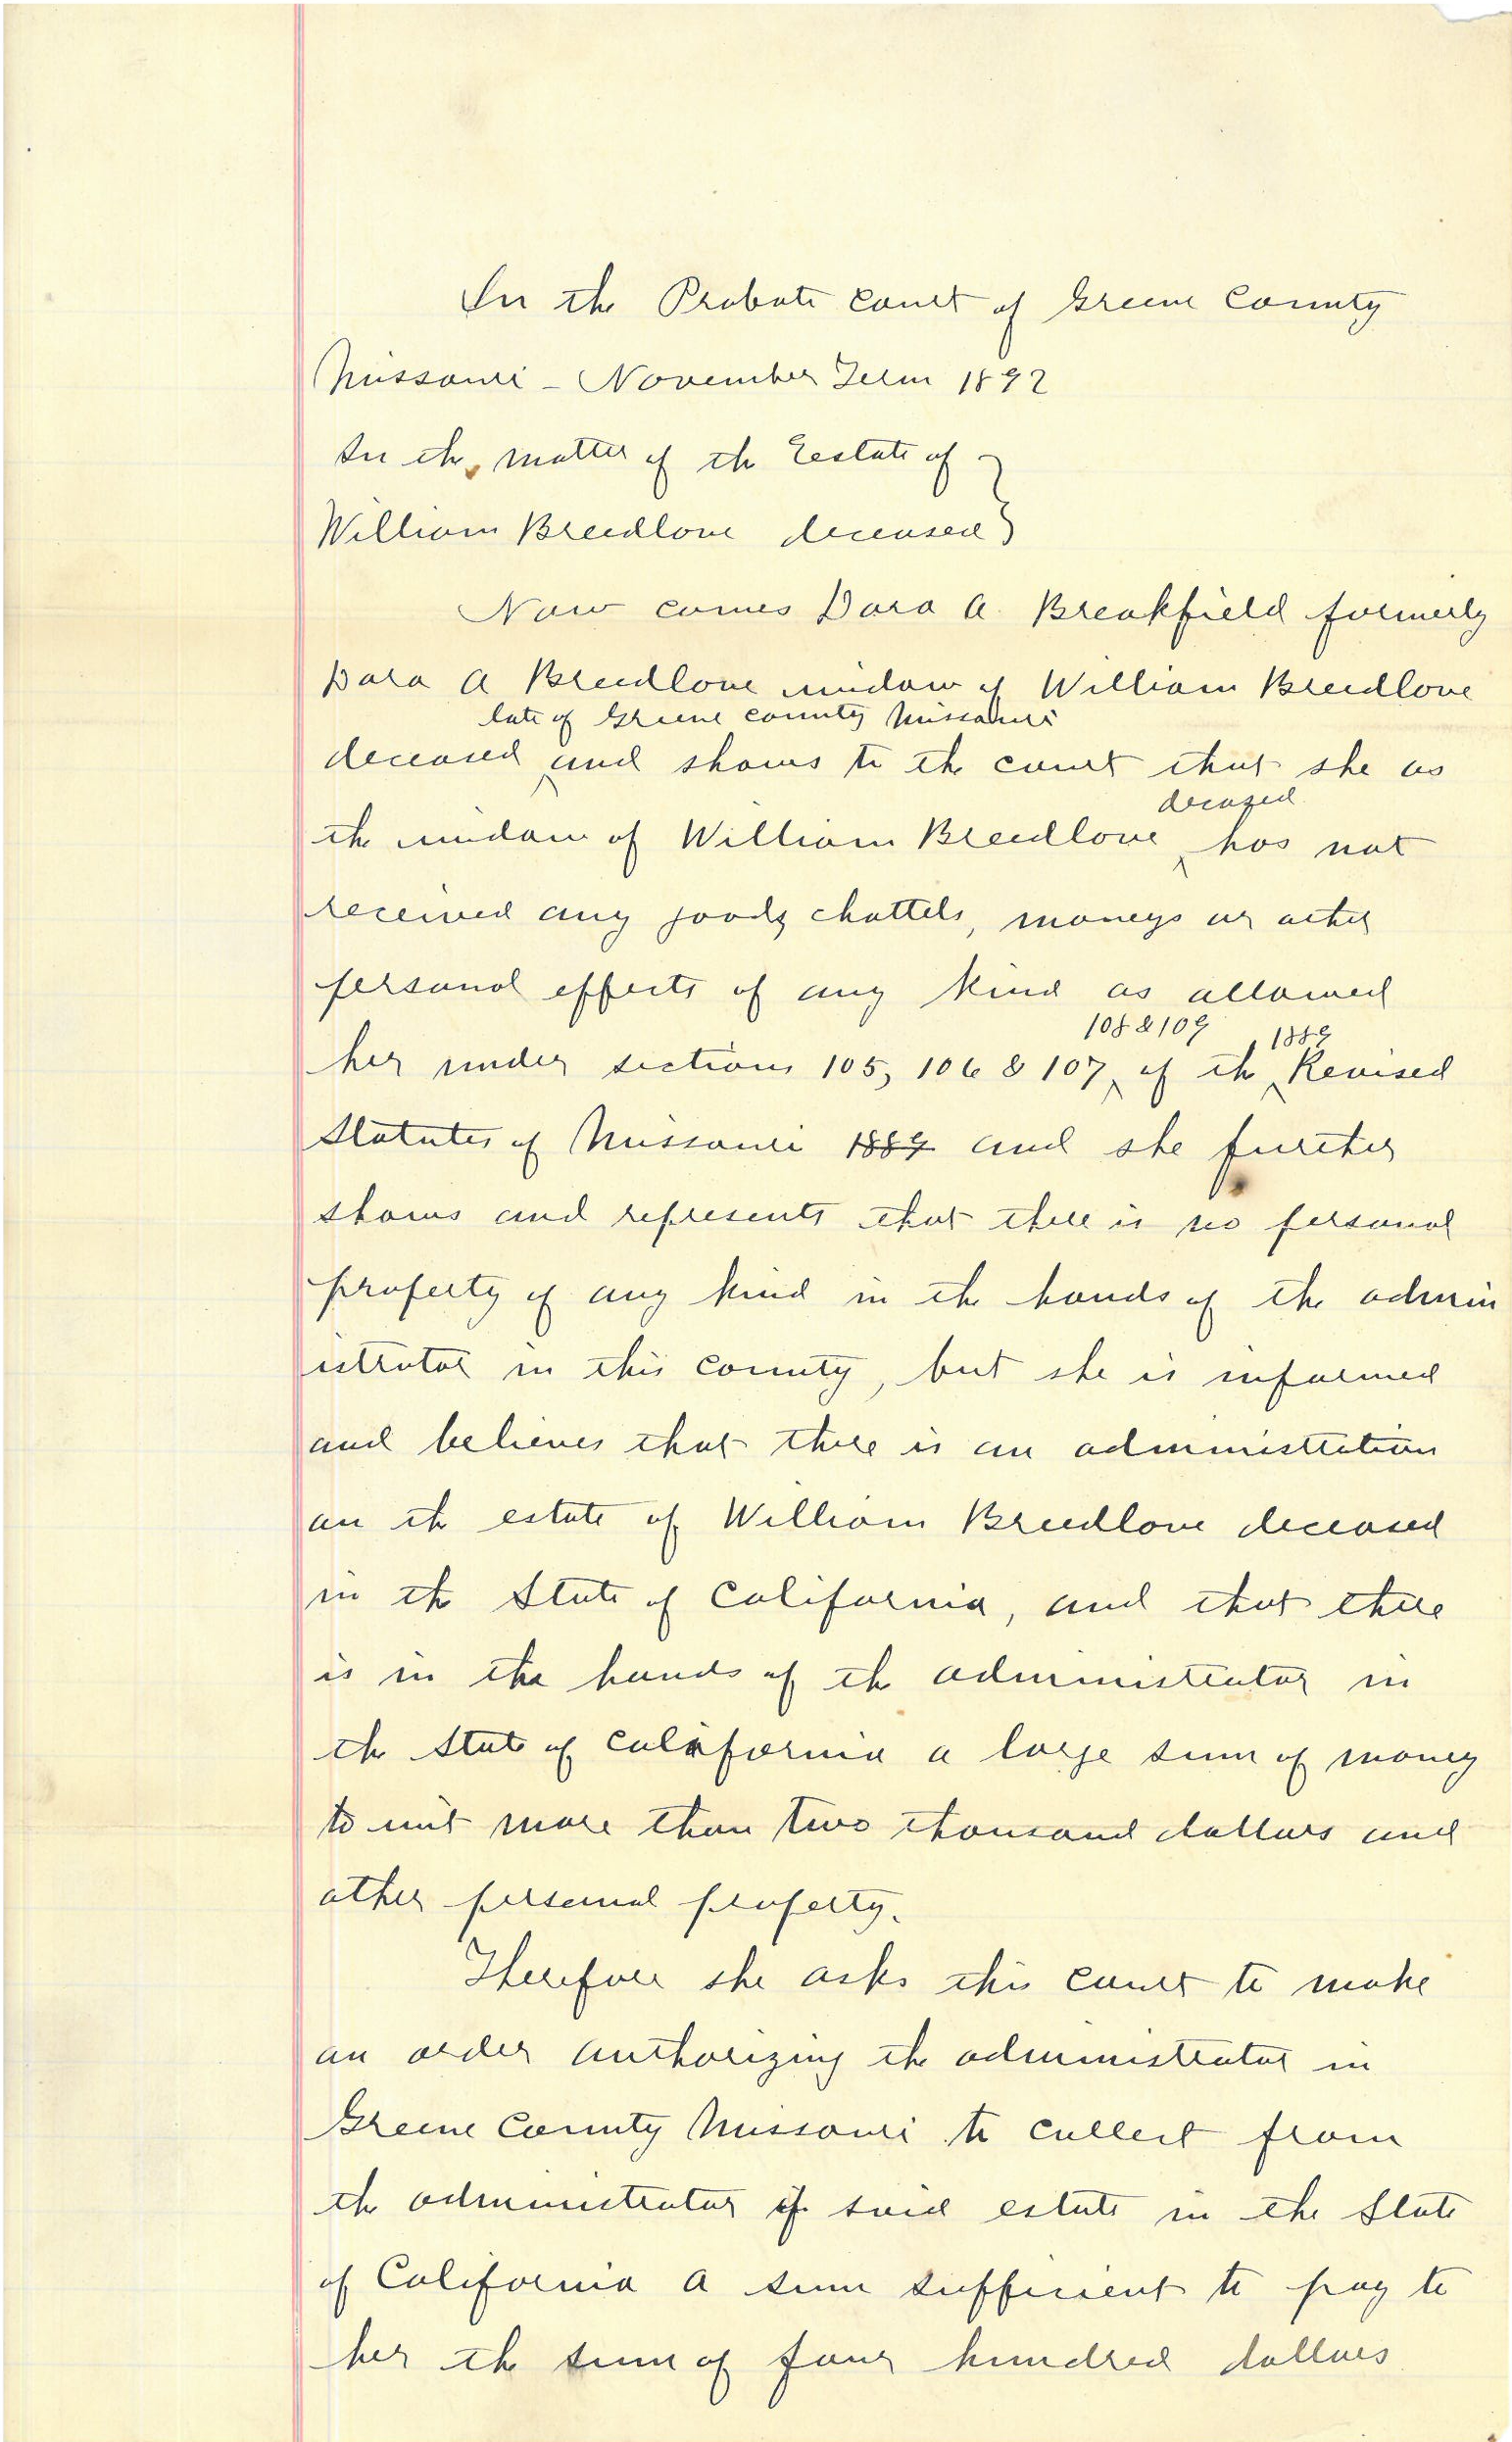 In the Probate Court of Greene County
Missouri - November Term 1892
In the matter of the Eestate of
William Breedlove deceased }
Now comes Dora A. Breakfield formerly
Dora A Breedlove widow of William Breedlove
late of Greene County Missouri
deceased and shows to the court that she as
deceased
the widow of William Breedlove has not
received any goods chattels, moneys or other
personal effects of any kind as allowed
108 & 109 1889
her under sections 105, 106 & 107 of the Revised
Statutes of Missouri 1889 and she further
shows and represents that there is no personal
property of any kind in the hands of the admin
istrator in this county, but she is informed
and believes that there is an administration
on the estate of William Breedlove deceased
in the State of California, and that there
is in the hands of the administrator in
the State of California a large sum of money
to wit more than two thousand dollars and
other personal property.
Therefore she asks this court to make
an order authorizing the administrator in
Greene County Missouri to collect from
the administrator of said estate in the State
of California a sum sufficient to pay to
her the sum of four hundred dollars